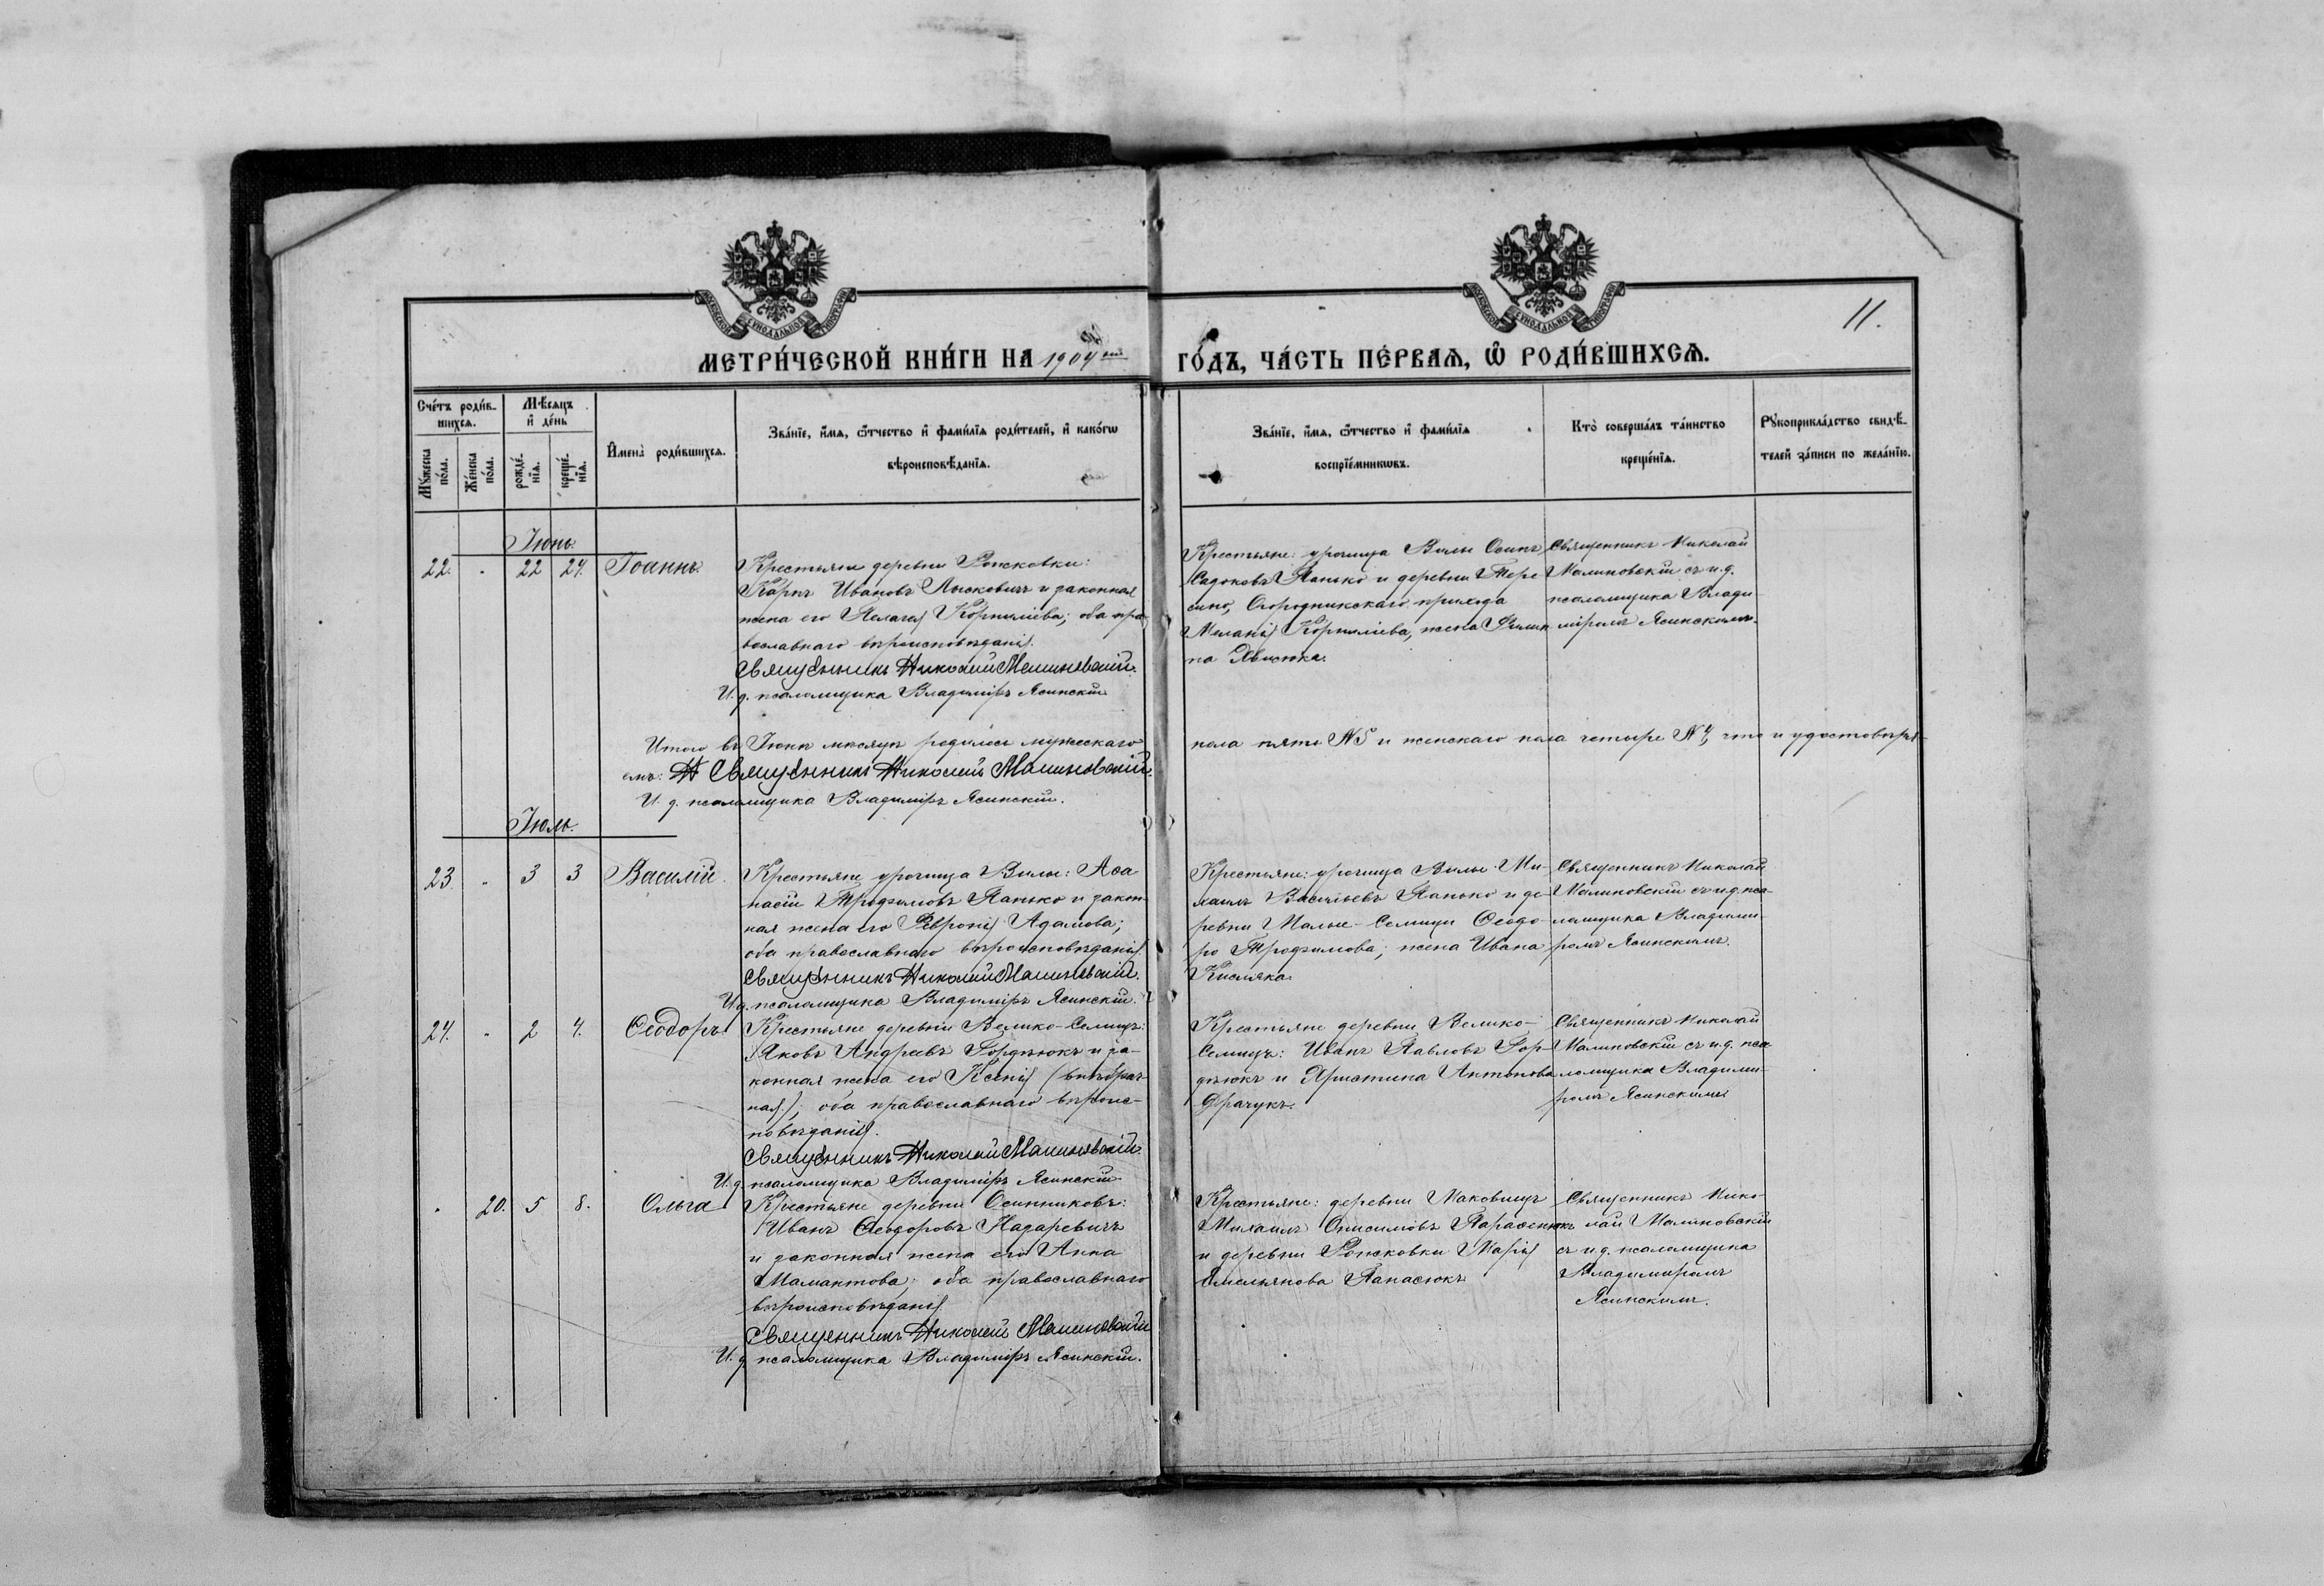 МОСКОВСКОЙ СУНОДАЛЬНОЙ ТИПОГРАФІИ
МОСКОВСКОЙ СУНОДАЛЬНОЙ ТИПОГРАФІИ
11.
МЕТРИ́ЧЕСКОЙ КНИ́ГИ НА 1904 ГО́ДЪ, ЧА́СТЬ ПЕ́РВАѦ, Ѡ҆ РОДИ́ВШИХСѦ.
Сче́тъ роди́в-
шихсѧ.
Мѣ́сѧцъ
и҆ де́нь
Мꙋ́жеска
по́ла.
Же́нска
по́ла.
рожде́-
нїѧ.
креще́-
нїѧ.
И҆мена̀ роди́вшихсѧ.
Зва́нїе, и҆́мѧ, ѻ҆́тчество и҆ фами́лїѧ роди́телей, и҆ како́гѡ
вѣроисповѣ́данїѧ.
Зва́нїе, и҆́мѧ, ѻ҆́тчество и҆ фами́лїѧ
воспрїе́мникѡвъ.
Кто̀ соверша́лъ та́инство
креще́нїѧ.
Рꙋкоприкла́дство свидѣ́-
телей за́писи по жела́нїю.
Іюнь.
22. 22 24. Іоаннъ.
Крестьяне деревни Рожковки:
Карпъ Ивановъ Лысковичъ и законная
жена его Пелагея Корниліева; оба пра-
вославнаго вѣроисповѣданія.
Священникъ Николай Малиновскій.
И. д. псаломщика Владиміръ Ясинскій
Крестьяне: урочища Вилы Осипъ
Садоковъ Панько и деревни Тере-
сино, Огородникскаго прихода
Меланія Корниліева, жена Филип-
па
Священникъ Николай
Малиновскій съ и. д.
псаломщика Влади-
міромъ Ясинскимъ.
Итого въ Іюнѣ мѣсяцѣ родилось мужескаго пола пять №5 и женскаго пола четыре №4, что и удостовѣря-
емъ: Священникъ Николай Малиновскій.
И. д. псаломщика Владиміръ Ясинскій.
Іюль.
23. 3 3 Василій.
Крестьяне урочища Вилы: Аѳа-
насій Трофимовъ Панько и закон-
ная жена его Февронія Адамова;
оба православнаго вѣроисповѣданія.
Священникъ Николай Малиновскій.
И. д. псаломщика Владиміръ Ясинскій.
Крестьяне: урочища Вилы Ми-
хаилъ Васильевъ Панько и де-
ревни Малые-Селищи Ѳеодо-
ра Трофимова, жена Ивана
Кисляка.
Священникъ Николай
Малиновскій съ и. д. пса-
ломщика Владими-
ромъ Ясинскимъ.
24. 2 4. Ѳеодоръ
Крестьяне деревни Велико-Селищъ:
Яковъ Андреевъ Гордѣюкъ и за-
конная жена его Ксенія (внѣбрач-
ная); оба православнаго вѣроис-
повѣданія.
Священникъ Николай Малиновскій.
И. д. псаломщика Владиміръ Ясинскій
Крестьяне деревни Велико-
Селищъ: Иванъ Павловъ Гор-
дѣюкъ и Христина Антонова
Драчукъ.
Священникъ Николай
Малиновскій съ и. д. пса-
ломщика Владими-
ромъ Ясинскимъ
20. 5 8. Ольга
Крестьяне деревни Осинниковъ:
Иванъ Ѳеодоровъ Назаревичъ
и законная жена его Анна
Мамантова; оба православнаго
вѣроисповѣданія
Священникъ Николай Малиновскій
И. д. псаломщика Владиміръ Ясинскій.
Крестьяне: деревни Маковищъ
Михаилъ Онисимовъ Парафенюкъ
и деревни Рожковки Марія
Емельянова Панасюкъ
Священникъ Нико-
лай Малиновскій
съ и. д. псаломщика
Владимиромъ
Ясинскимъ.